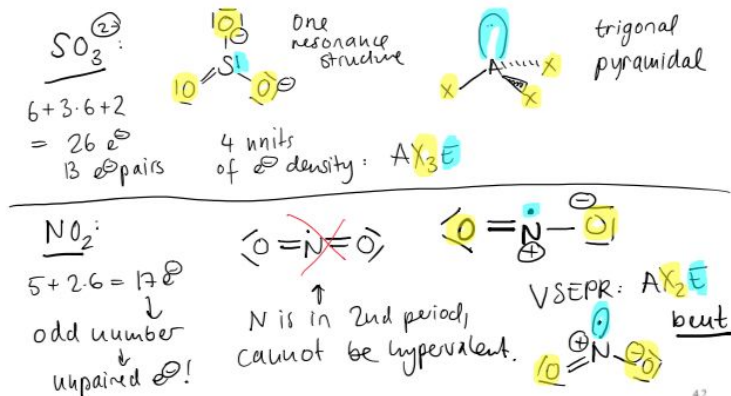 SO₃²⁻:
6+3·6+2
= 26 e⊖
13 e⊖ pairs
|O|⊖
S
⟨O O⟩⊖
one
resonance
structure
4 units
of e⊖ density: AX₃E
A
X X X
trigonal
pyramidal
NO₂:
5+2·6 = 17 e⊖
↓
odd number
↓
unpaired e⊖!
⟨O=N=O⟩
↑
N is in 2nd period,
cannot be hypervalent.
⟨O=N⊕—O|⊖
VSEPR: AX₂E
bent
⊕N
O O⊖
42